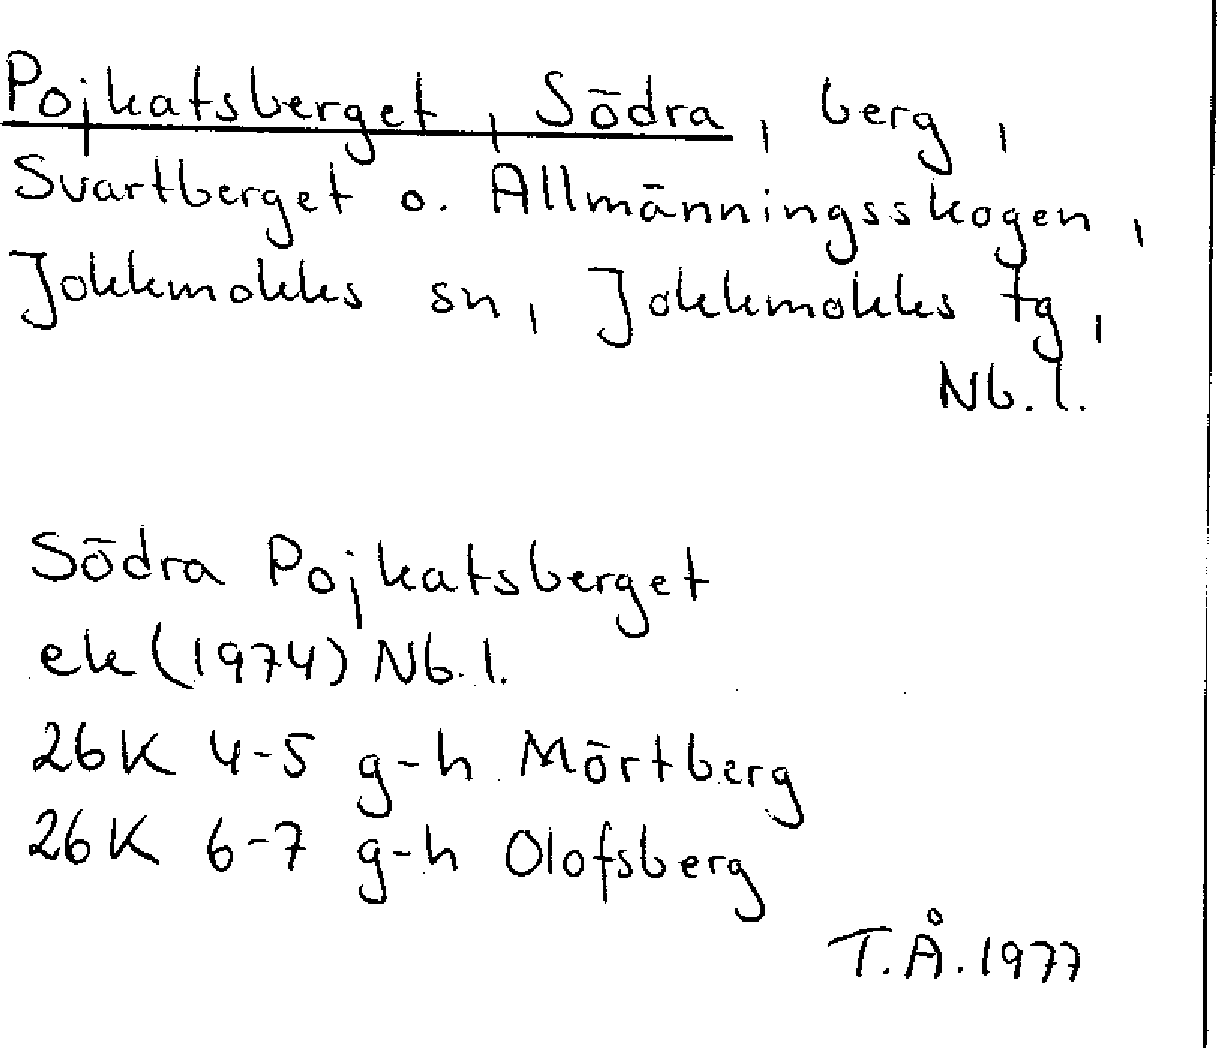 Pojkatsberget, Södra, berg,
Svartberget o. Allmänningsskogen,
Jokkmokks sn, Jokkmokks tg,
Nb. l.
Södra Pojkatsberget
ek (1974) Nb. l.
26K 4-5 g-h Mörtberg
26K 6-7 g-h Olofsberg
T.Å. 1977